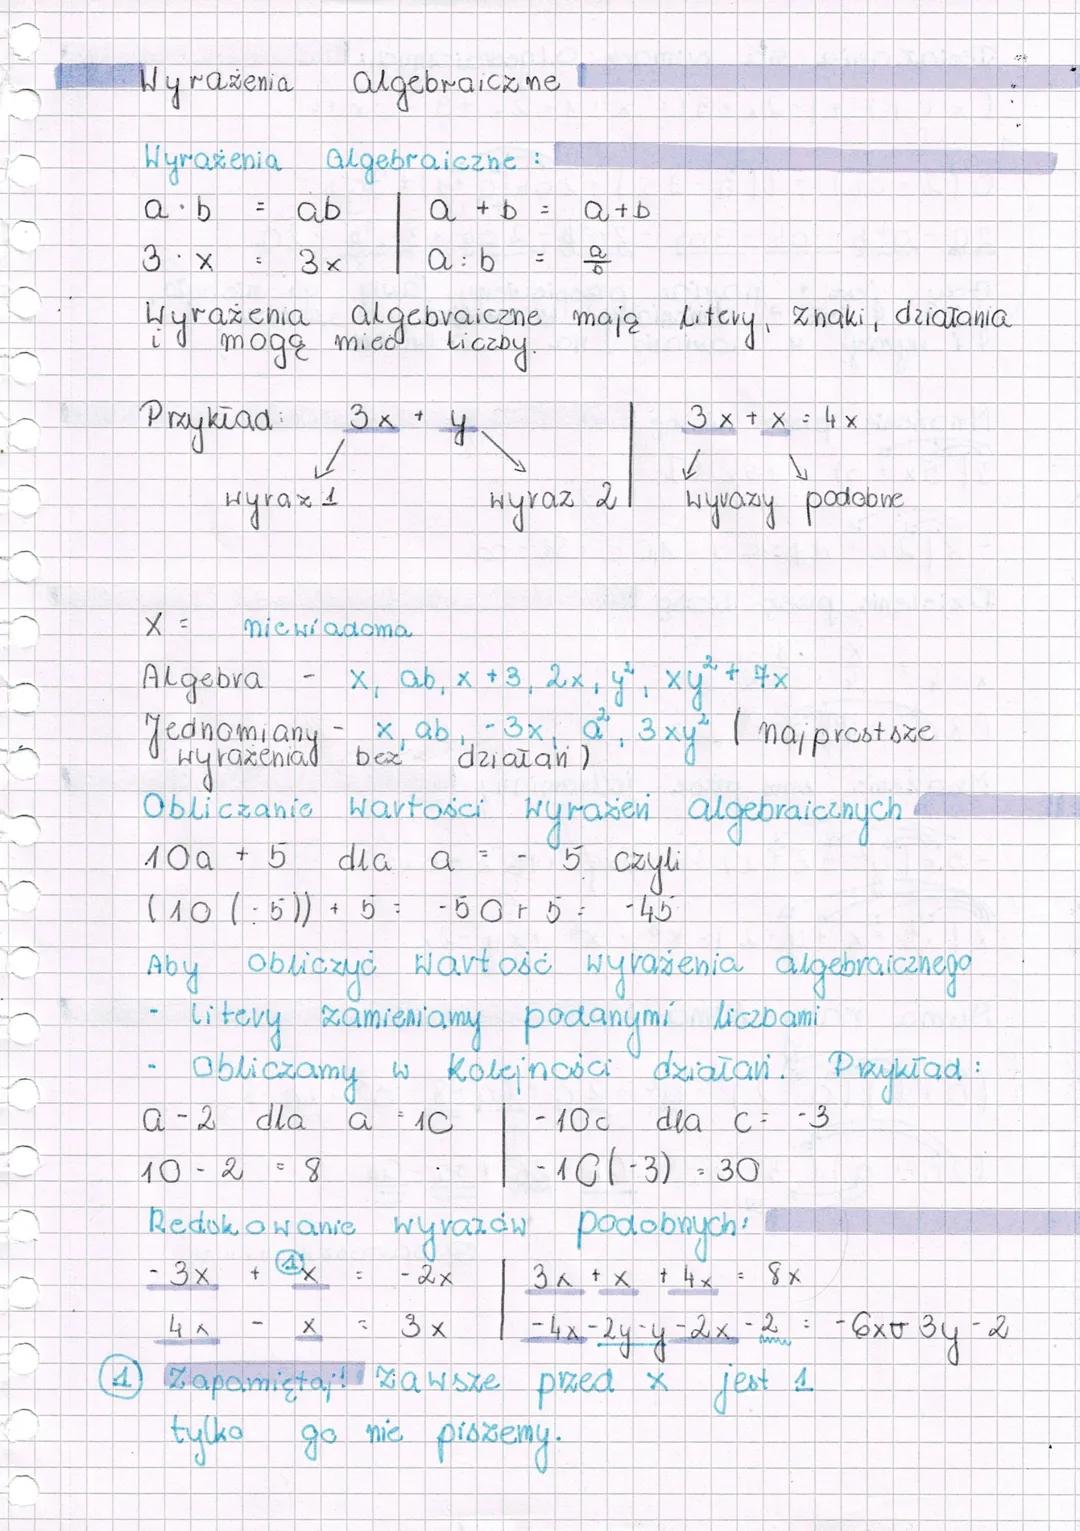 Wyrażenia algebraiczne
Wyrażenia algebraiczne :
a · b = ab | a + b = a+b
3 · x = 3x | a : b = a/b
Wyrażenia algebraiczne mają litery, znaki, działania
i mogą mieć liczby.
Przykład: 3x + y | 3x + x = 4x
wyraz 1 wyraz 2 | wyrazy podobne
X = niewiadoma
Algebra - x, ab, x +3, 2x, y², xy² + 7x
Jednomiany - x, ab, -3x, a², 3xy² ( najprostsze
wyrażenia bez działań )
Obliczanie wartości wyrażeń algebraicznych
10a + 5 dla a = - 5 czyli
(10 (-5)) + 5 = -50 + 5 = -45
Aby obliczyć wartość wyrażenia algebraicznego
- litery zamieniamy podanymi liczbami
- Obliczamy w kolejności działań. Przykład :
a - 2 dla a = 10 | -10c dla c = -3
10 - 2 = 8 | -10(-3) = 30
Redukowanie wyrazów podobnych:
- 3x + ①x = -2x | 3x + x + 4x = 8x
4x - x = 3x | -4x-2y-y-2x-2 = -6x-3y-2
① Zapamiętaj! Zawsze przed x jest 1
tylko go nie piszemy.